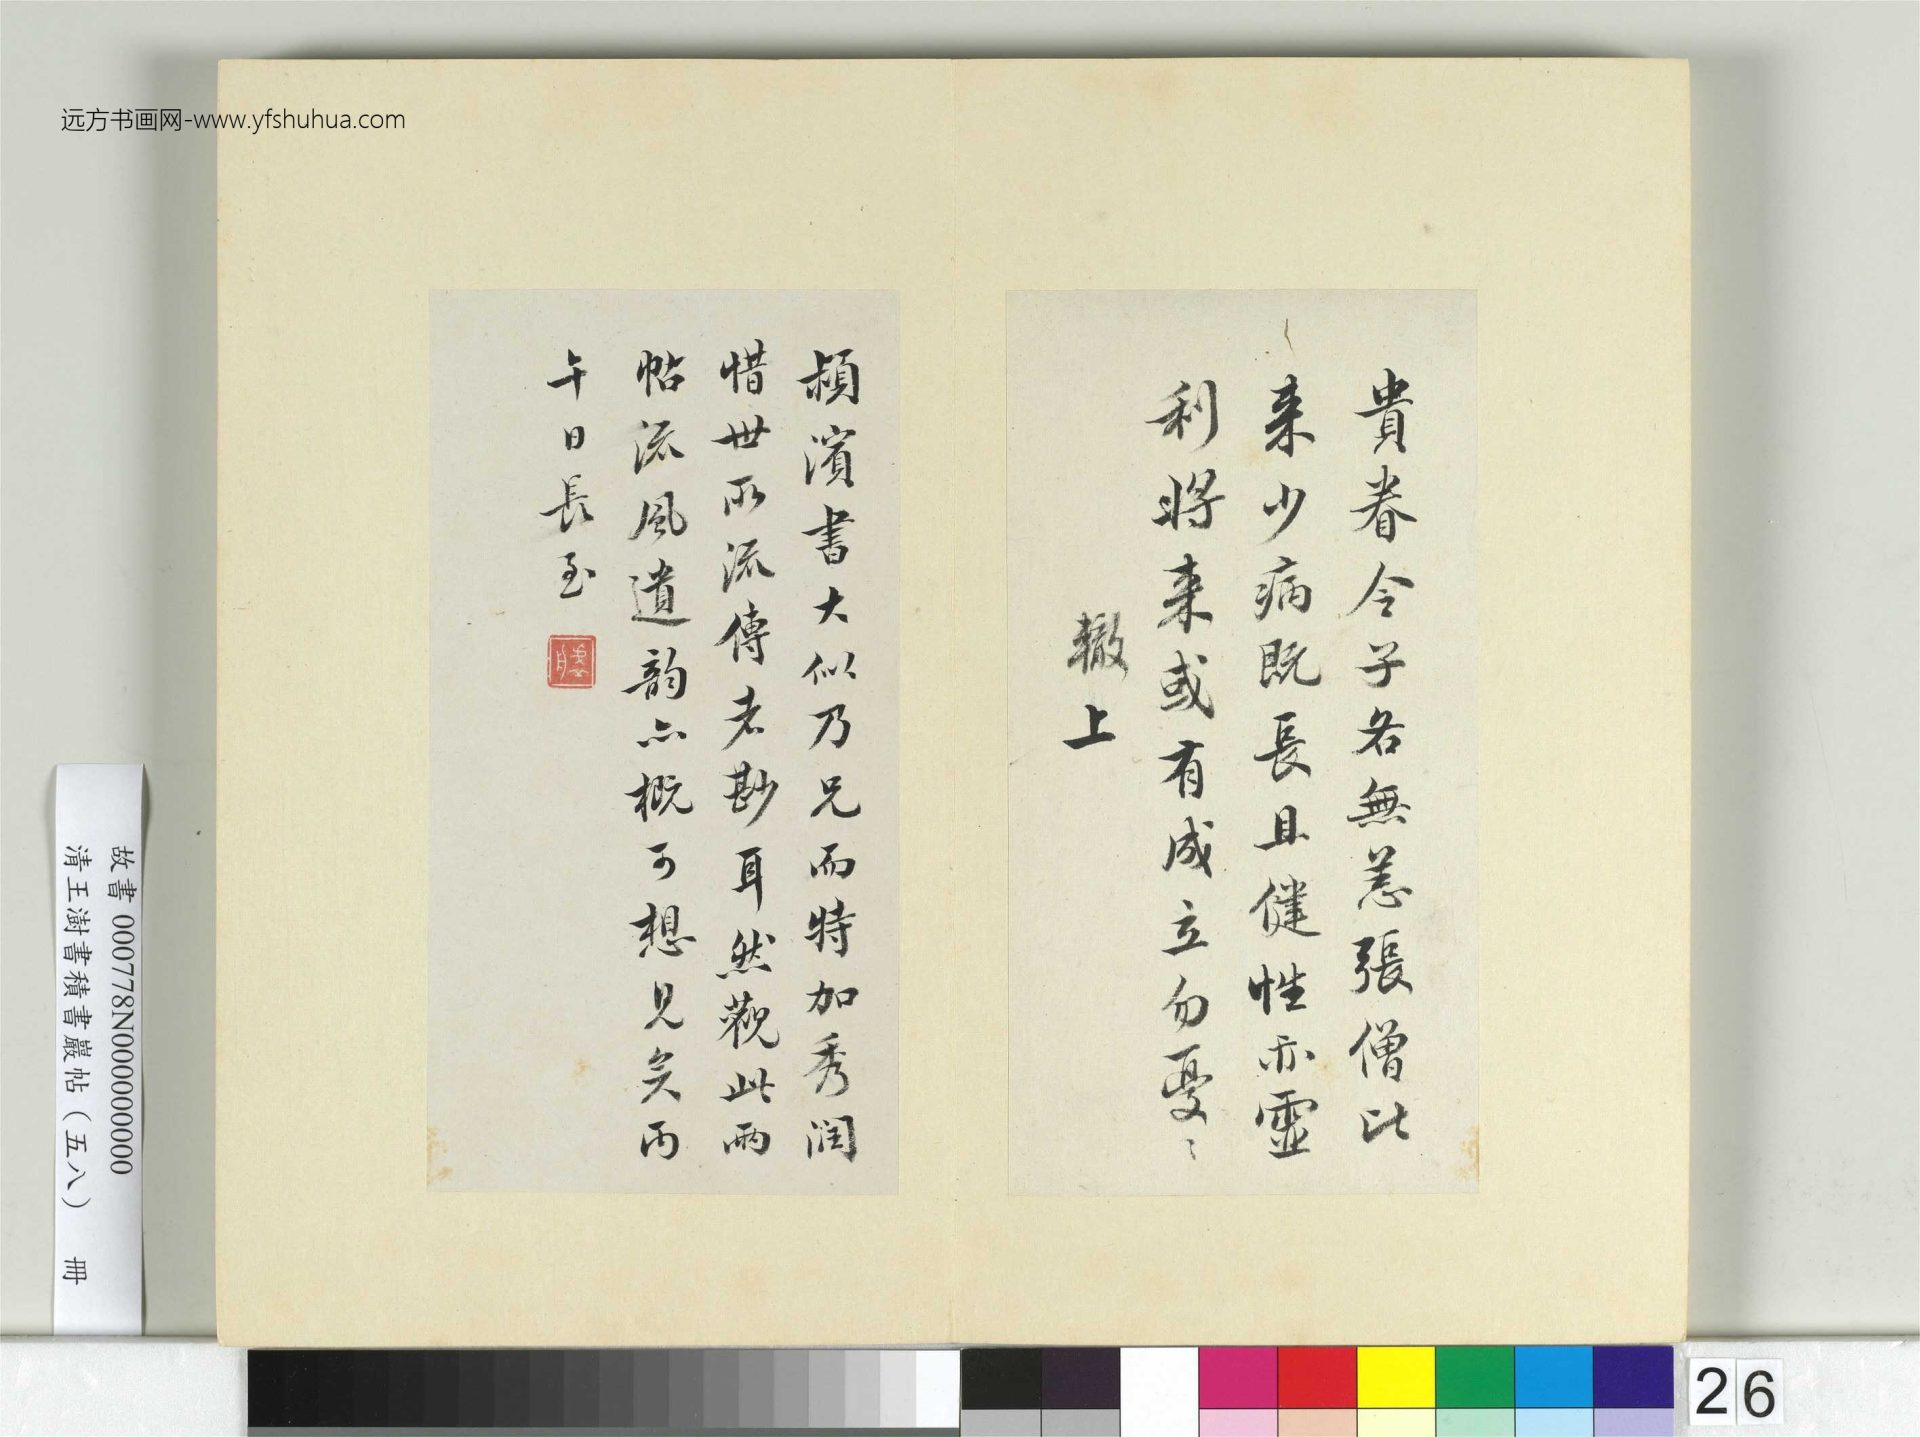 远方书画网-www.yfshuhua.com
貴眷令子各無恙張僧比
来少病既長且健性亦靈
利將来或有成立勿憂〻
轍上
潁濱書大似乃兄而特加秀潤
惜世所流傳者尠耳然觀此兩
帖流風遺韵亦概可想見矣丙
午日長至
故書 000778N000000000
清王澍書積書巖帖（五八） 冊
26